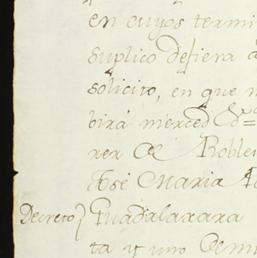 en cuyos termi
suplico defiera a
solicito, en que
birá merced &a=
rer de Roble
José Maria
Decreto} Guadalaxara
ta y uno de mi